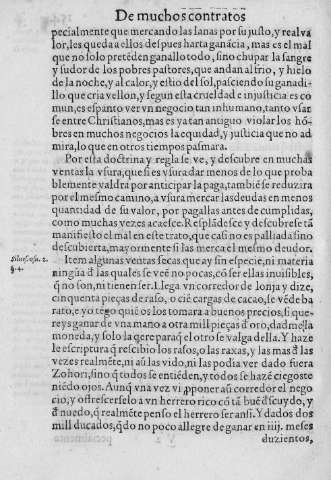 De muchos contratos
pecialmente que mercando las lanas por su justo, y real va
lor, les queda a ellos despues harta ganãcia, mas es el mal
que no solo pretẽden ganallo todo, sino chupar la sangre
y sudor de los pobres pastores, que andan al frio, y hielo
de la noche, y al calor, y estio del sol, pasciendo su ganadi-
llo que cria vellon, y segun esta crueldad e injusticia es co
mun, es espanto ver vn negocio tan inhumano, tanto vsar
se entre Christianos, mas es ya tan antiguo violar los hõ-
bres en muchos negocios la equidad, y justicia que no ad
mira, lo que en otros tiempos pasmara.
Por esta doctrina y regla se ve, y descubre en muchas
ventas la vsura, que si es vsura dar menos de lo que proba
blemente valdrá por anticipar la paga, tambiẽ se reduzira
por el mesmo camino, a vsura mercar las deudas en menos
quantidad de su valor, por pagallas antes de cumplidas,
como muchas vezes acaesce. Resplãdesce y descubrese tã
manifiesto el mal en este trato, que casi no es palliada sino
descubierta, mayormente si las merca el mesmo deudor.
Item algunas ventas secas que ay sin especie, ni materia
ningũa đ las quales se veẽ no pocas, cõ ser ellas inuisibles,
q̃ no son, ni tienen ser. Llega vn corredor de lonja y dize,
cinquenta pieças de raso, o ciẽ cargas de cacao, se vẽde ba
rato, e yo tẽgo quiẽ os los tomara a buenos precios, si que-
reys ganar de vna mano a otra mill pieças đ oro, dad me la
moneda, y solo la q̃ere para q̃ el otro se valga della. Y haze
le escriptura q̃ rescibio los rasos, o las raxas, y las mas đ las
vezes realmẽte, ni as las vido, ni las podia ver dado fuera
Zohori, sino q̃ todos se entiẽden, y todos se hazẽ ciegos te
niẽdo ojos. Aunq̃ vna vez vi pponer a vn corredor el nego
cio, y ofrescerselo a vn herrero rico cõ tã buẽ đscuydo, y
đ nuedo, q̃ realmẽte penso el herrero ser ansi. Y dados dos
mill ducados, q̃do no poco allegre de ganar en iiij. meses
duzientos,